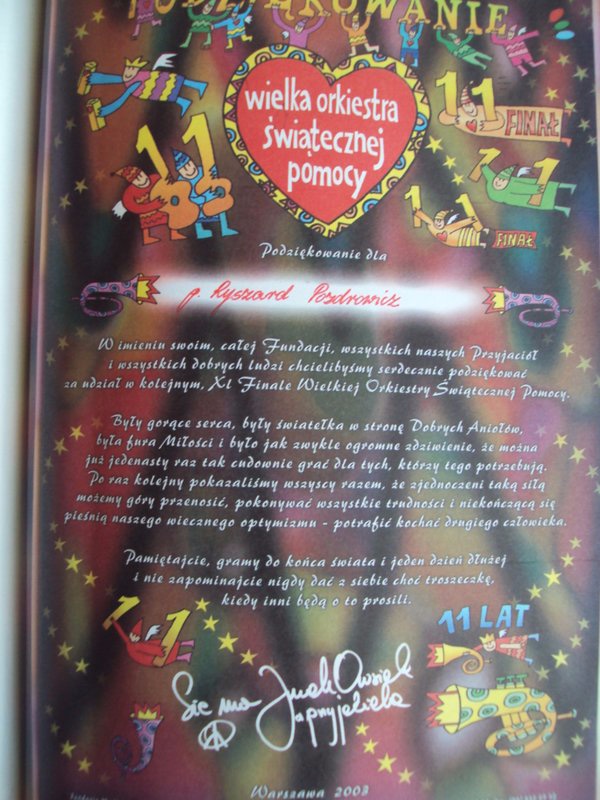 PODZIĘKOWANIE
wielka orkiestra
świątecznej
pomocy
11
FINAŁ
11
11
11
FINAŁ
Podziękowanie dla
p. Ryszard Pozdrowicz
W imieniu swoim, całej Fundacji, wszystkich naszych Przyjaciół
i wszystkich dobrych ludzi chcielibyśmy serdecznie podziękować
za udział w kolejnym, XI Finale Wielkiej Orkiestry Świątecznej Pomocy.
Były gorące serca, były światełka w stronę Dobrych Aniołów,
była fura Miłości i było jak zwykle ogromne zdziwienie, że można
już jedenasty raz tak cudownie grać dla tych, którzy tego potrzebują.
Po raz kolejny pokazaliśmy wszyscy razem, że zjednoczeni taką siłą
możemy góry przenosić, pokonywać wszystkie trudności i niekończącą się
pieśnią naszego wiecznego optymizmu - potrafić kochać drugiego człowieka.
Pamiętajcie, gramy do końca świata i jeden dzień dłużej
i nie zapominajcie nigdy dać z siebie choć troszeczkę,
kiedy inni będą o to prosili.
11
11 LAT
Sie ma Jurek Owsiak
a przyjaciela
Warszawa 2003